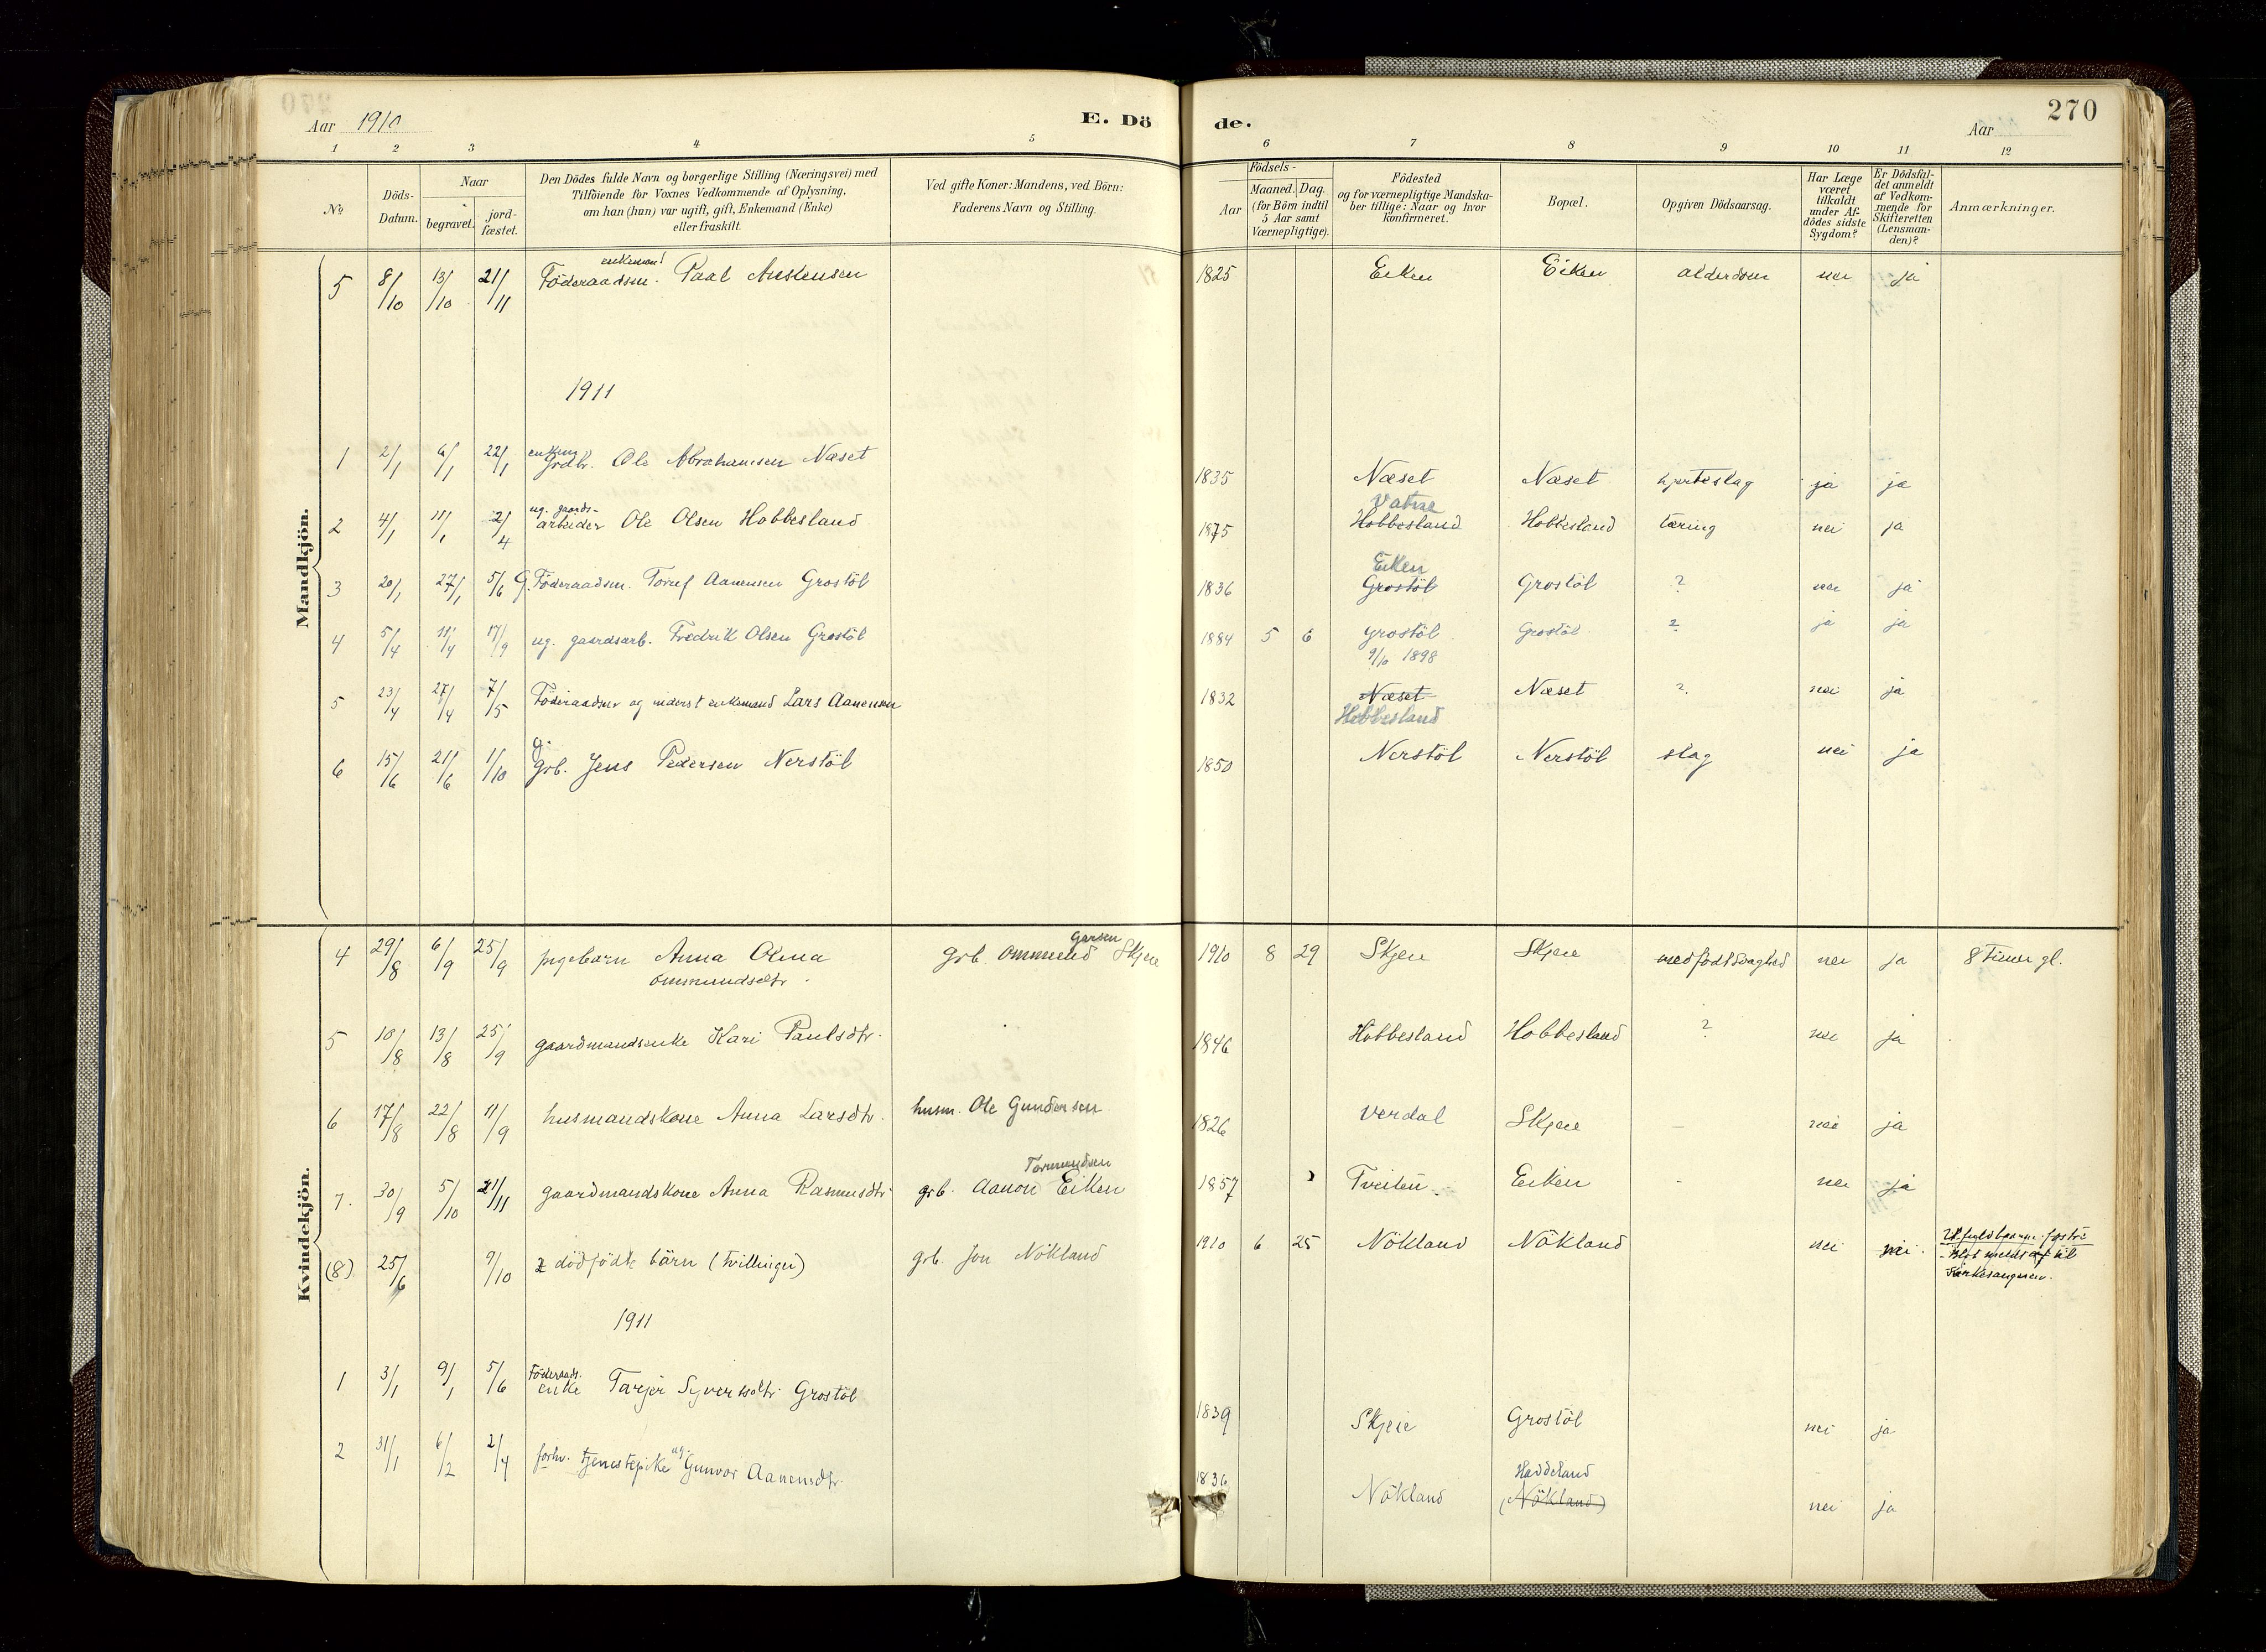 Aar 1910
E. Dö
de.
Aar
270
1 2 3 4 5 6 7 8 9 10 11 12
No.
Döds-
Datum.
Naar
begravet.
jord-
fæstet.
Den Dödes fulde Navn og borgerlige Stilling (Næringsvei) med
Tilföiende for Voxnes Vedkommende af Oplysning,
om han (hun) var ugift, gift, Enkemand (Enke)
eller fraskilt.
Ved gifte Koner: Mandens, ved Börn:
Faderens Navn og Stilling.
Födsels-
Aar
Maaned. Dag.
(for Börn indtil
5 Aar samt
Værnepligtige).
Födested
og for værnepligtige Mandska-
ber tillige: Naar og hvor
konfirmeret.
Bopæl.
Opgiven Dödsaarsag.
Har Læge
været
tilkaldt
under Af-
dödes sidste
Sygdom?
Er Dödsfal-
det anmeldt
af Vedkom-
mende for
Skifteretten
(Lensman-
den)?
Anmærkninger.
Mandkjön.
enkemand
5 8/10 13/10 21/11 Föderaadsm. Paal Anstensen 1825 Eiken Eiken alderdom nei ja
1911
enkem.
1 2/1 6/1 22/1 grdbr. Ole Abrahamsen Næset 1835 Næset Næset hjerteslag ja ja
ug. gaards- Vatne
2 4/1 11/1 2/4 arbeider Ole Olsen Hobbesland 1875 Hobbesland Hobbesland tæring nei ja
Eiken
3 20/1 27/1 5/6 G. Föderaadsm. Aanensen Grostöl 1836 Grostöl Grostöl ? nei ja
4 5/4 11/4 17/9 ug. gaardsarb. Fredrik Olsen Grostöl 1884 5 6 Grostöl Grostöl ? ja ja
9/10 1898
5 23/4 27/4 7/5 Föderaadsm og inderst enkemand Lars Aanensen 1832 Næset Næset ? nei ja
Hobbesland
g.
6 15/6 21/6 1/10 grb. Jens Pedersen Nerstöl 1850 Nerstöl Nerstöl slag nei ja
Kvindekjön.
Garsen
4 29/8 6/9 25/9 pigebarn Anna Olena grb. Ommund Skjeie 1910 8 29 Skjeie Skjeie medfödt svaghed nei ja 8 Timer gl.
Ommundsdtr.
5 10/8 13/8 25/9 gaardmandsenke Kari Paulsdtr. 1846 Hobbesland Hobbesland ? nei ja
6 17/8 22/8 11/9 husmandskone Anna Larsdtr. husm. Ole Gundersen 1826 Verdal Skjeie – nei ja
Tormundsen
7. 30/9 5/10 21/11 gaardmandskone Anna Rasmusdtr. grb. Aanon Eiken 1857 Tveiten Eiken - nei ja
(8) 25/6 9/10 2 dödfödte börn (tvillinger) grb. Jon Nökland 1910 6 25 Nökland Nökland nei nei. fostre
til
Kirkesangeren.
1911
Föderaads.
1 3/1 9/1 5/6 enke Tarjer Syvertsdtr. Grostöl 1839 Skjeie Grostöl nei ja
ug. Haddeland
2 31/1 6/2 2/4 forhv. tjenestepike Gunvor Aanensdtr. 1836 Nökland (Nökland) nei ja